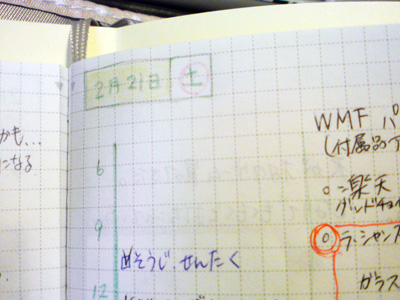 かも...
になる
2月21日 土
6
9
そうじ、せんたく
12
WMF パ
(付属品ア
○=楽天
グッドチョイ
○ ラ・シャンス
ガラス